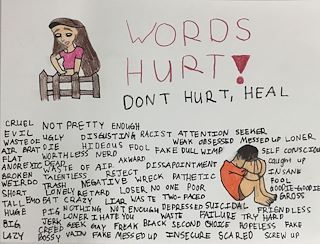 WORDS
HURT!
DON'T HURT, HEAL
CRUEL NOT PRETTY ENOUGH
EVIL UGLY DISGUSTING RACIST ATTENTION SEEKER
WASTE OF AIR BRAT DIE HIDEOUS FOOL FAKE DULL WIMP WEAK OBSESSED MESSED UP LONER
FLAT WORTHLESS NERD SELF CONSCIOUS
ANOREXIC DEAD WASTE OF AIR AKWARD DISSAPOINTMENT caught up
BROKEN TALENTLESS REJECT INSANE
WEIRDO TRASH NEGATIVE WRECK PATHETIC FOOL
SHORT LONELY RETARD LOSER NO ONE POOR GOODIE-GOODIE
TALL EMO EAT CRAZY LIAR WASTE TWO-FACED GROSS
HUGE PIG NOTHING NOT ENOUGH DEPRESSED SUICIDAL FRIENDLESS
BIG JERK LONER I HATE YOU WASTE FAILURE TRY HARD
UGLY CREEP GEEK GAY FREAK BLACK SECOND CHOICE HOPELESS FAKE
LAZY BOSSY VAIN FAKE MESSED UP INSECURE SCARED SCREW UP